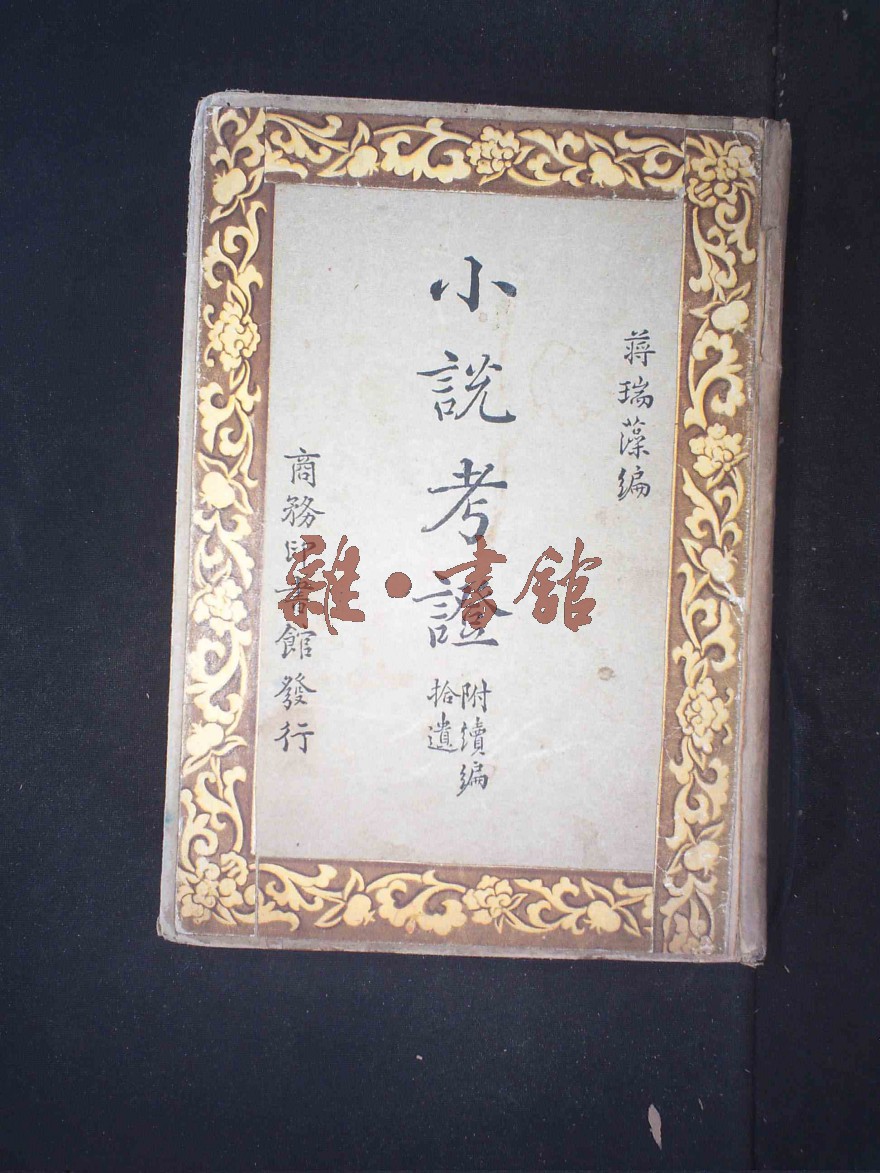 蔣瑞藻編
小說考證
附續編
拾遺
商務印書館發行
雜·書館